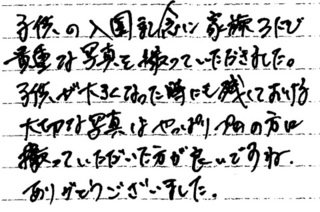 子供の入園記念に家族3人で
貴重な写真を撮っていただきました。
子供が大きくなった時にも残しておける
大切な写真はやっぱりプロの方に
撮っていただいた方が良いですね。
ありがとうございました。